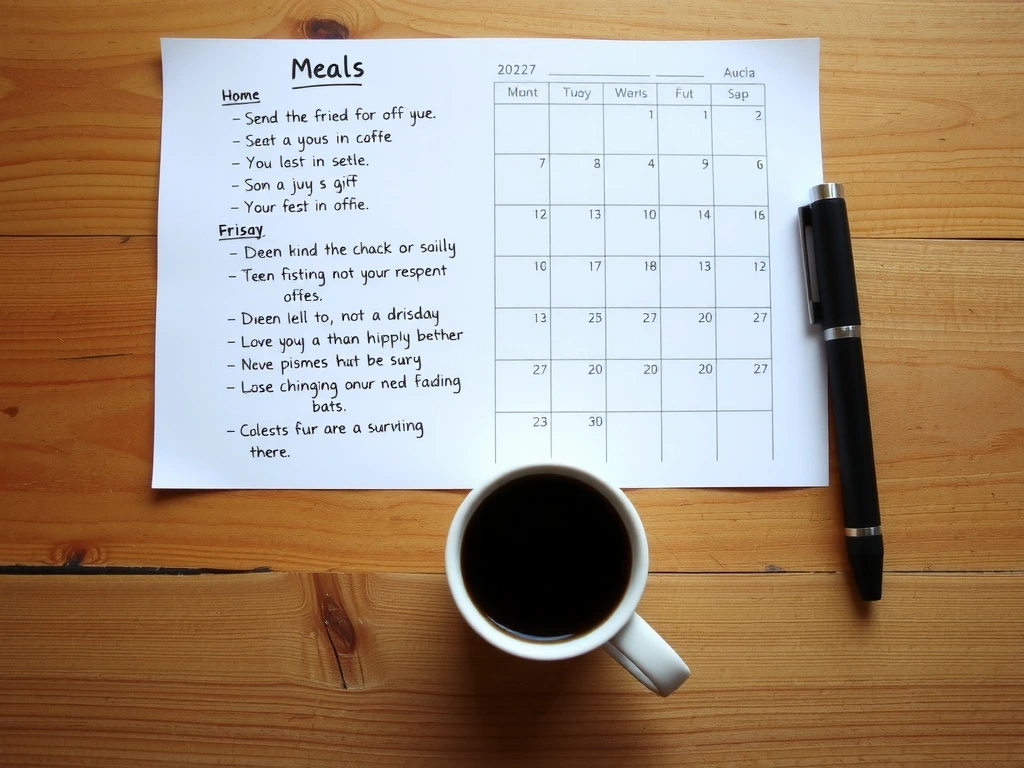 Meals
Home
– Send the fried for off yue.
– Seat a yous in coffe
– You last in setle.
– Son a juy s giff
– Your fest in offie.
Frisay
– Deen kind the chack or sailly
– Teen fisting not your respent
offes.
– Dieen lell to, not a drisday
– Love you a than hipply bether
– Neve pismes hat be sury
– Lose chinging onur ned fading
bats.
– Colests fur are a survling
there.
20227 Aucia
Mont Tuay Warls Fut Sap
1 1 2
7 8 4 9 6
12 13 10 14 16
10 17 18 13 12
13 25 27 20 27
27 20 20 20 27
23 30